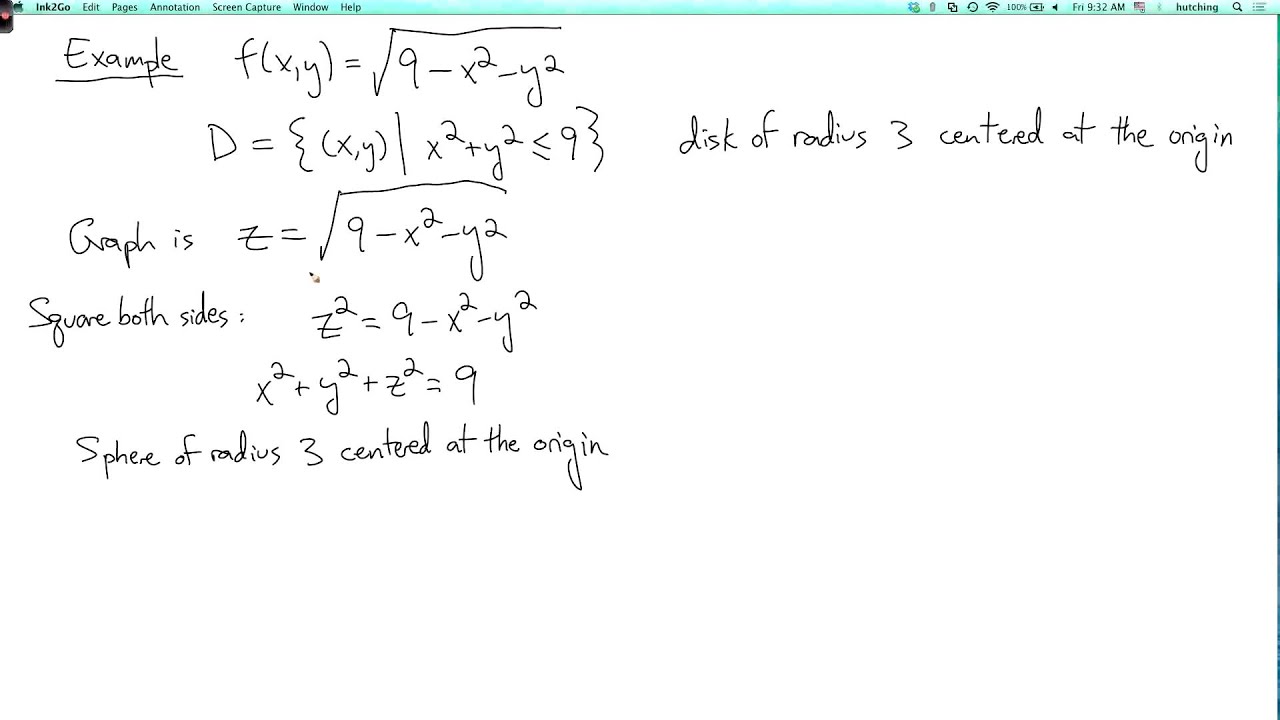 Ink2Go Edit Pages Annotation Screen Capture Window Help 100% Fri 9:32 AM hutching
Example f(x,y) = √(9 − x² − y²)
D = {(x,y) | x² + y² ≤ 9} disk of radius 3 centered at the origin
Graph is z = √(9 − x² − y²)
Square both sides: z² = 9 − x² − y²
x² + y² + z² = 9
Sphere of radius 3 centered at the origin